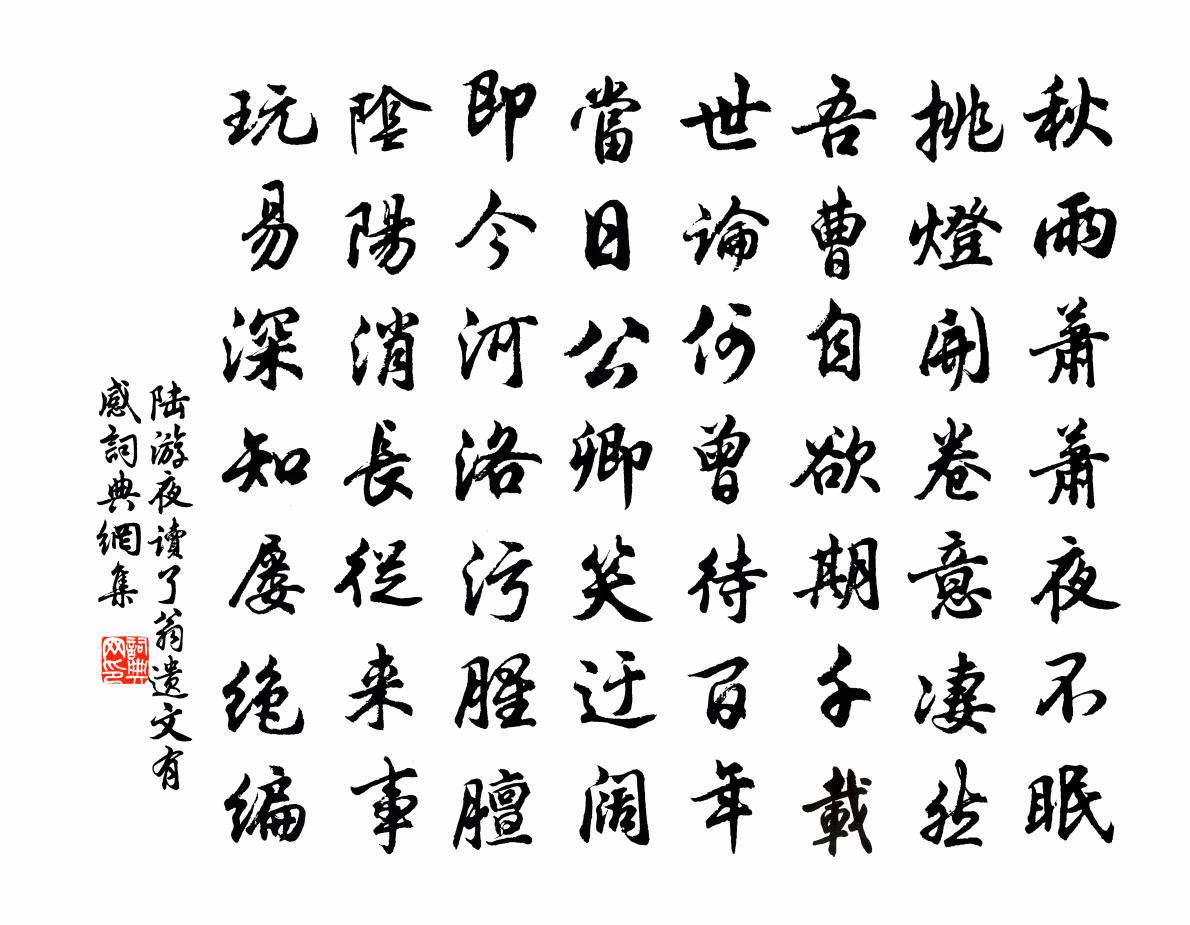 秋雨蕭蕭夜不眠
挑燈開卷意凄然
吾曹自欲期千載
世論何曾待百年
當日公卿笑迂闊
即今河洛污腥膻
陰陽消長從来事
玩易深知屡绝编
陆游夜讀了翁遗文有
感詞典網集
詞典网印